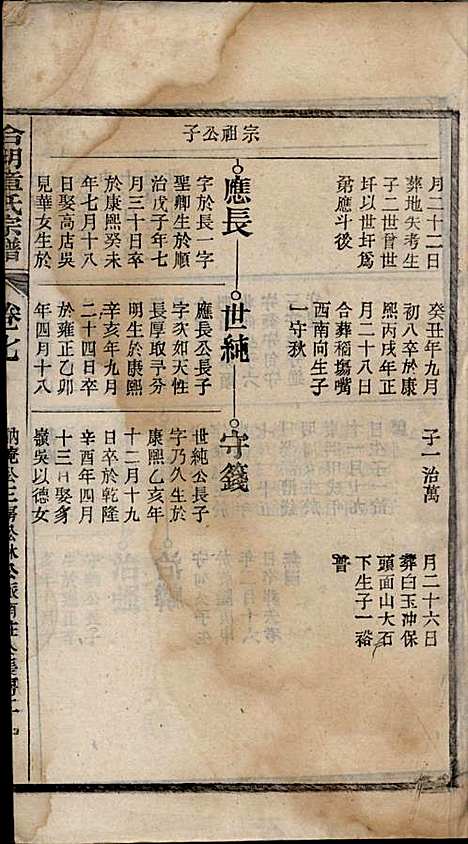 月二十二日
葬地失考生
子二世曾世
圩以世圩爲
弟應斗後
癸丑年九月
初八卒於康
熙丙戌年正
月二十八日
合葬稻塲嘴
西南向生子
一守秋
子一治萬
月二十六日
葬白玉冲保
頭面山大石
下生子一裕
普
宗祖公子
應長
世純
守籛
字於長一字
聖卿生於順
治戊子年七
月三十日卒
於康熙癸未
年七月十八
日娶高店吳
見華女生於
應長公長子
字㺵如天性
長厚取予分
明生於康熙
辛亥年九月
二十四日卒
於雍正乙卯
年四月十八
世純公長子
字乃久生於
康熙乙亥年
十二月十九
日卒於乾隆
辛酉年四月
十三日娶畬
嶺吳以德女
氏宗譜
卷七